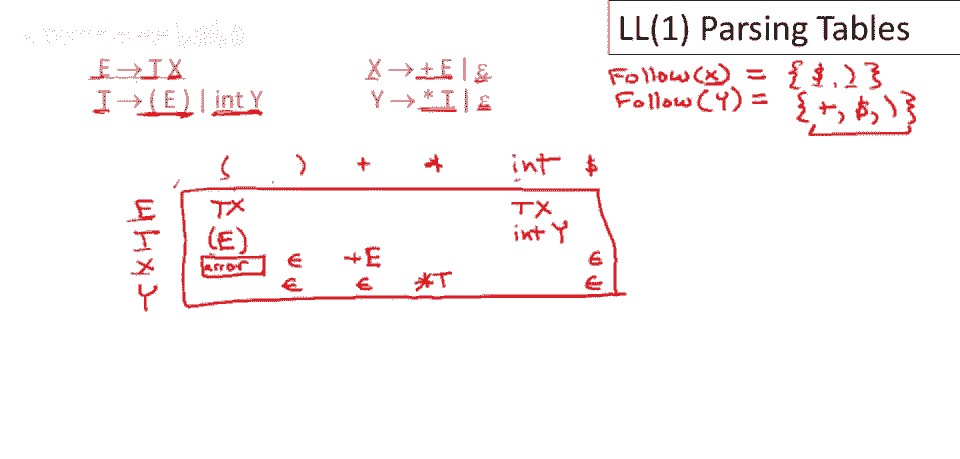 LL(1) Parsing Tables
E → T X    X → + E | ε
T → ( E ) | int Y    Y → * T | ε
Follow(x) = { $, ) }
Follow(Y) = { +, $, ) }
( ) + * int $
E TX TX
T (E) int Y
X error ε +E ε
Y ε ε *T ε